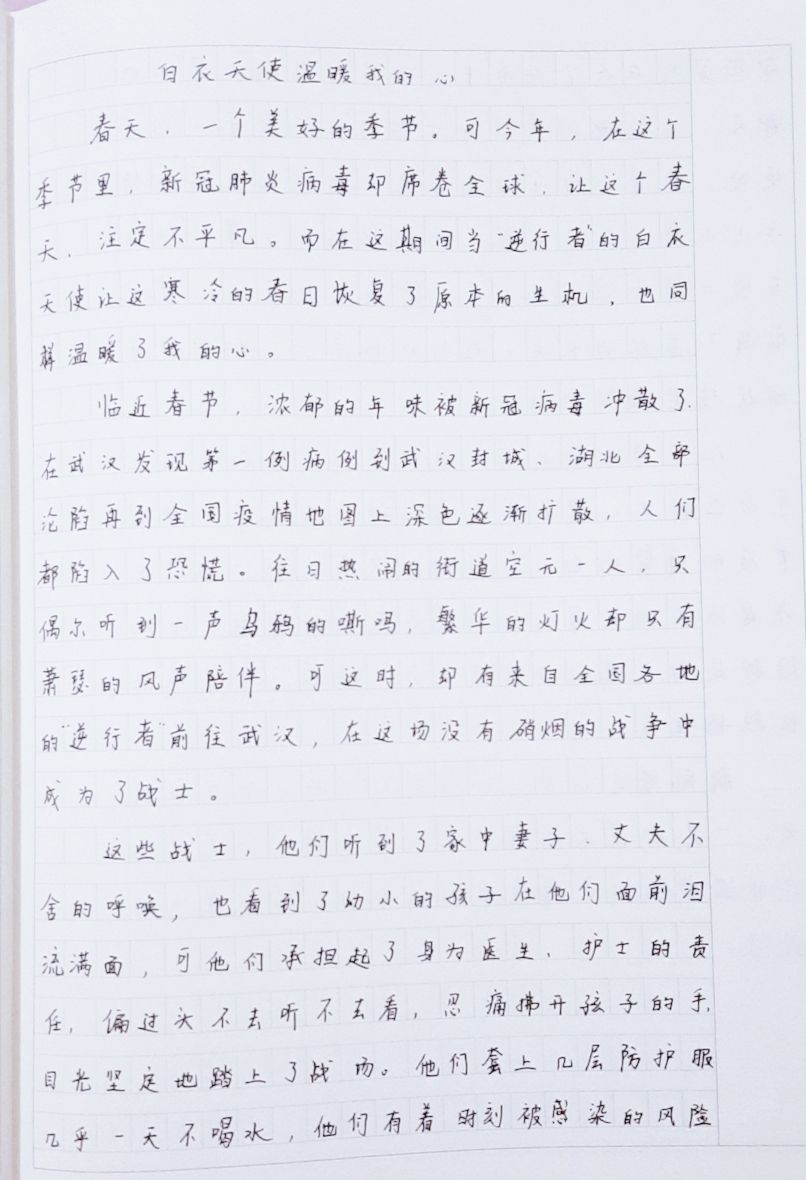 白衣天使温暖我的心
春天、一个美好的季节。可今年，在这个
季节里，新冠肺炎病毒却席卷全球，让这个春
天，注定不平凡。而在这期间当“逆行者”的白衣
天使让这寒冷的春日恢复了原本的生机，也同
样温暖了我的心。
临近春节，浓郁的年味被新冠病毒冲散了，
在武汉发现第一例病例到武汉封城、湖北全部
沦陷再到全国疫情地图上深色逐渐扩散，人们
都陷入了恐慌。往日热闹的街道空无一人，只
偶尔听到一声乌鸦的嘶鸣，繁华的灯火却只有
萧瑟的风声陪伴。可这时，却有来自全国各地
的“逆行者”前往武汉，在这场没有硝烟的战争中
成为了战士。
这些战士，他们听到了家中妻子、丈夫不
舍的呼唤，也看到了幼小的孩子在他们面前泪
流满面，可他们承担起了身为医生、护士的责
任，偏过头不去听不去看，忍痛拂开孩子的手，
目光坚定地踏上了战场。他们套上几层防护服
几乎一天不喝水，他们有着时刻被感染的风险